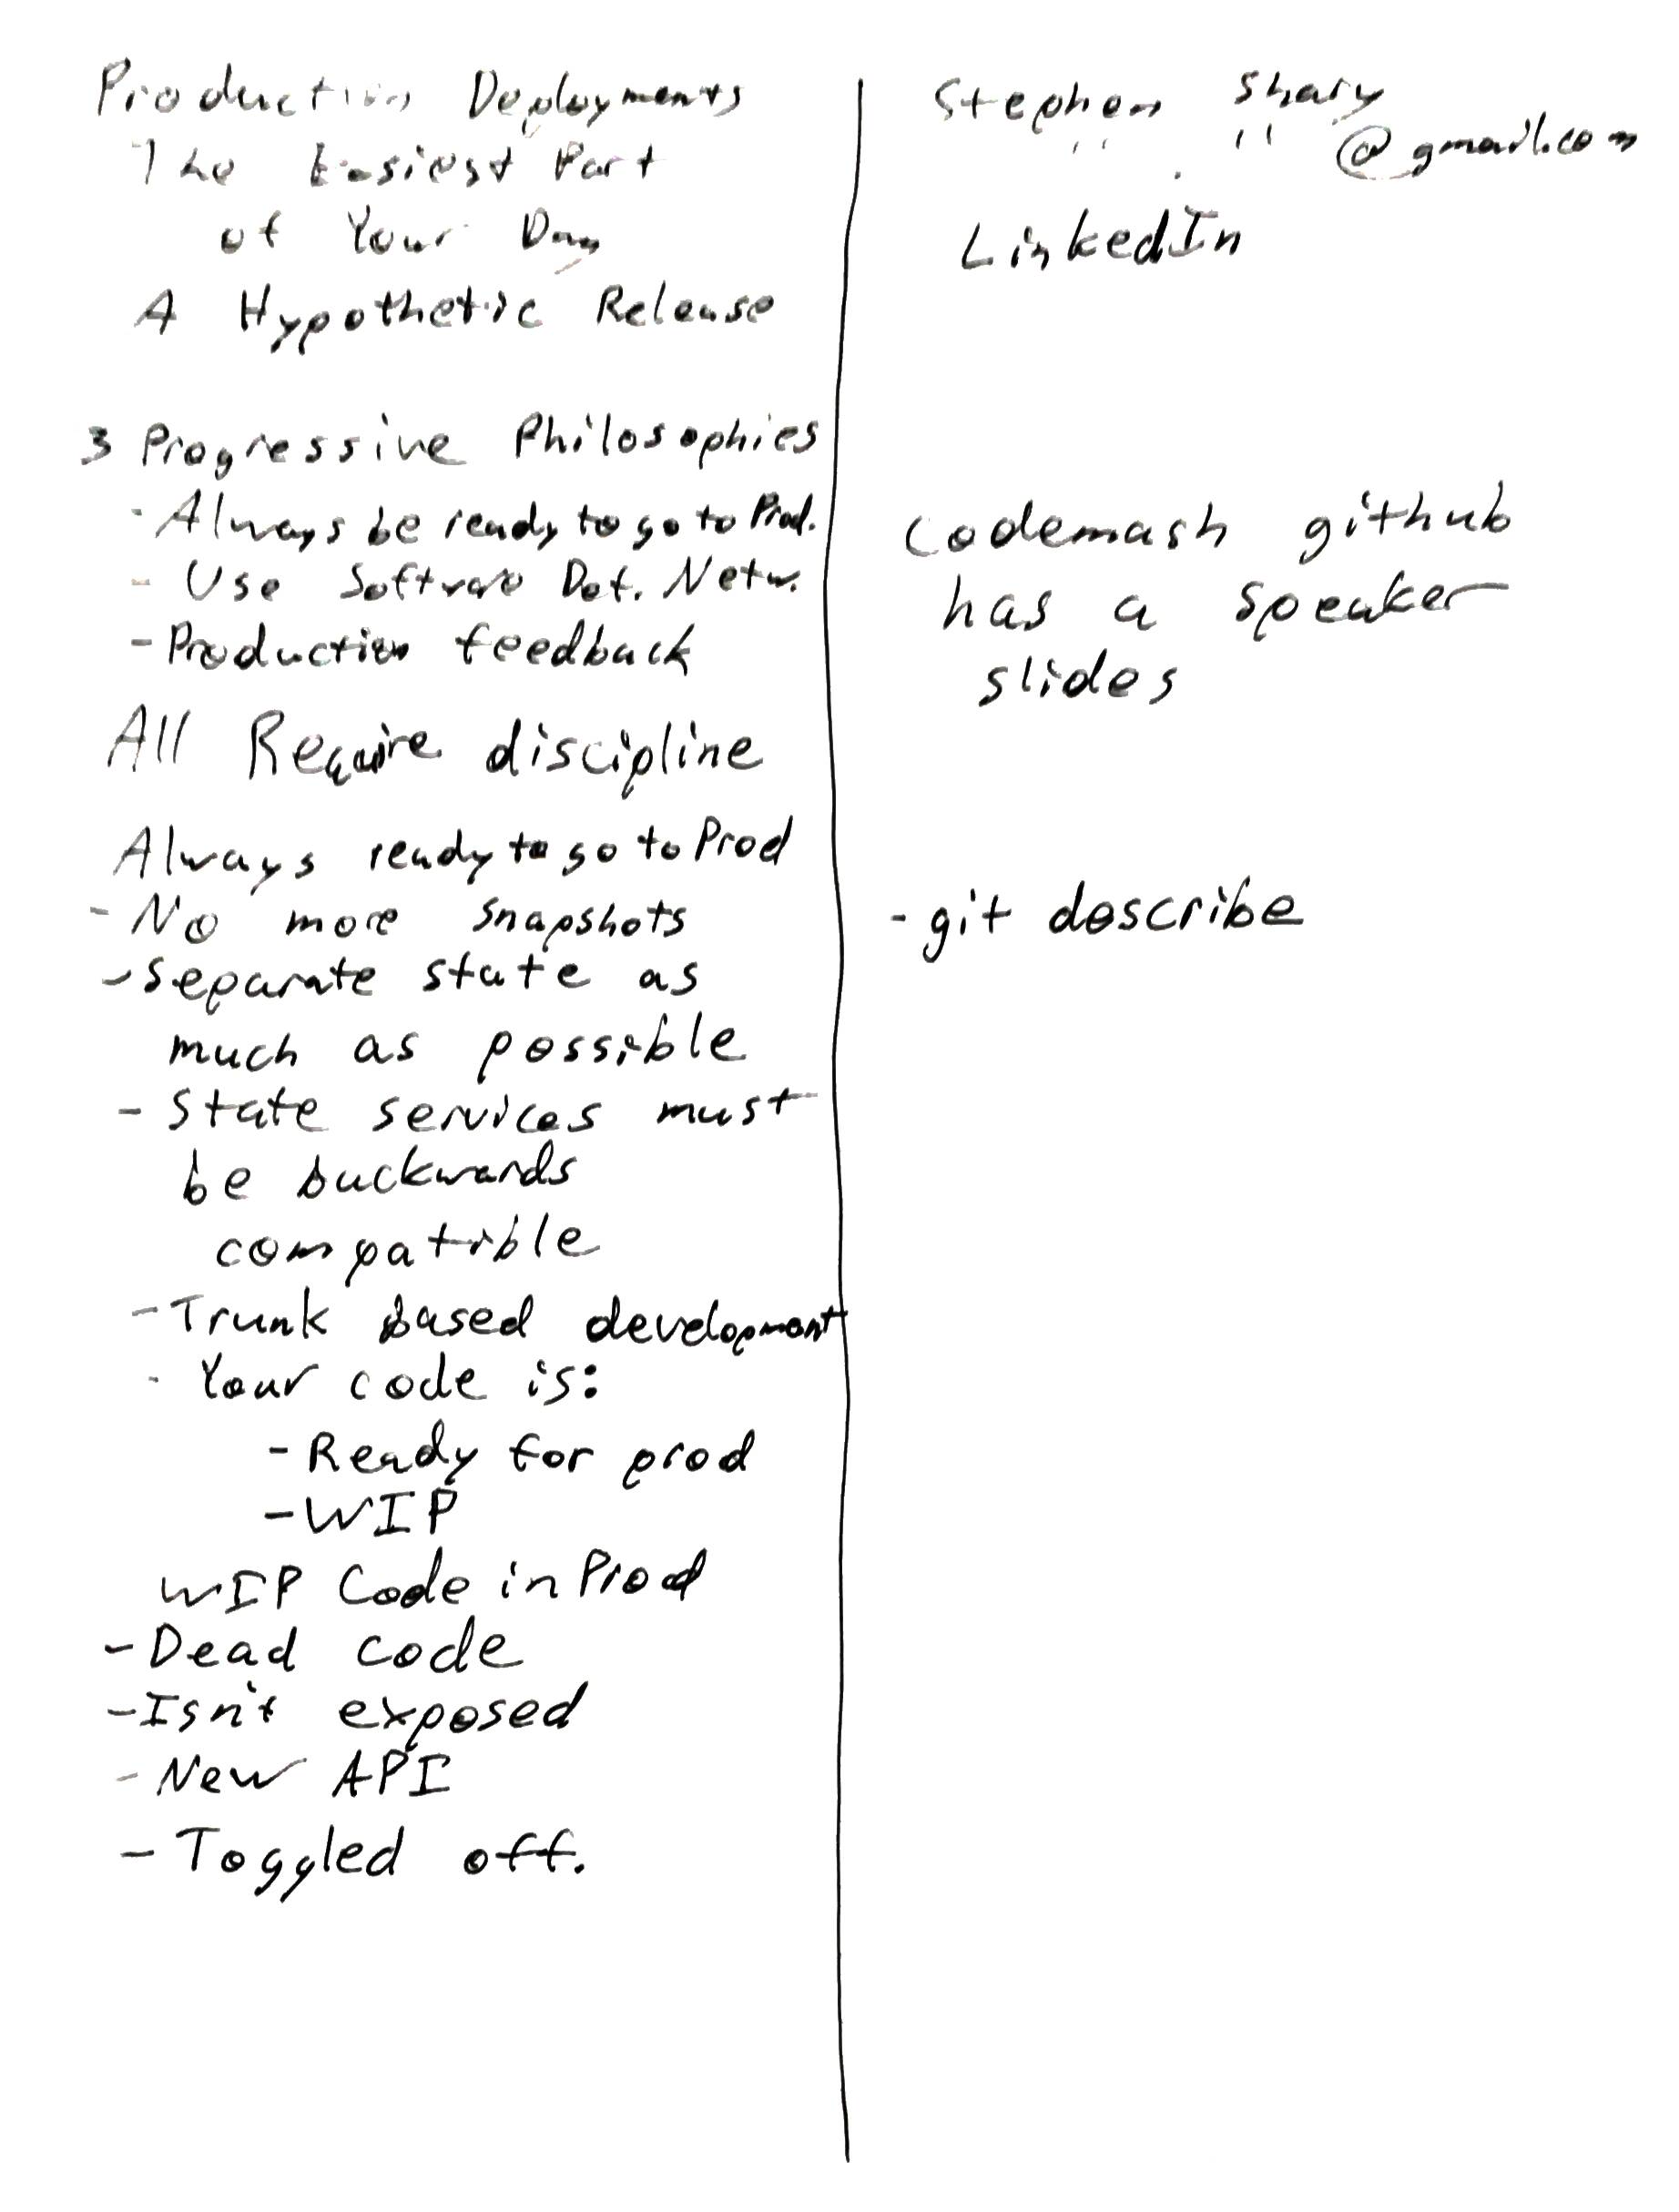 Production Deployments
The Easiest Part
of Your Day
A Hypothetic Release
3 Progressive Philosophies
- Always be ready to go to Prod.
- Use Software Def. Netw.
- Production feedback
All Require discipline
Always ready to go to Prod
- No more snapshots
- Separate state as
much as possible
- State services must
be backwards
compatible
- Trunk based development
- Your code is:
- Ready for prod
- WIP
WIP Code in Prod
- Dead code
- Isn't exposed
- New API
- Toggled off.
Stephen Shary
" . " @gmail.com
LinkedIn
Codemash github
has a speaker
slides
- git describe